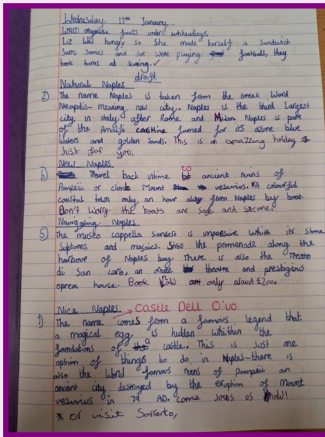 Wednesday 17th January
WALT: organise facts under subheadings
Liz was hungry so she made herself a sandwich
Sam, James and we were playing football, they
took turns at scoring. ✓
draft
Natural Naples
2) The name Naples is taken from the Greek word
Neapolis- meaning new city. Naples is the third largest
city in italy after Rome and Milan Naples is part
of the Amalfi famed for its azure blue
waters and golden sands. This is an amazzing holiday
Just for you,
New Naples
3) Travel back intime to ancient ruins of
Pompeii or climb Mount vesuvius. A colourful
coastal town only an hour from Naples by boat.
Don't worry the boats are safe and secure!
Navigating Naples
5) The museo cappella sansevero is impressive with its stone
and the promenade along the
harbour of Naples bay There is also the Theatro
di San carlo, an theatre and prestigious
house. Book only about £200.
Nice Naples
Castle Dell O'vo
1) The name comes from a famous legend that
a magical egg is hidden whithin the
foundations of castle. This is just one
option of things to do in Naples-there is
also the world famous ruins of pompeii an
ancient city destroyed by the eruption of mount
vesuvius in 79 AD. come now!
* or visit Sorrento,